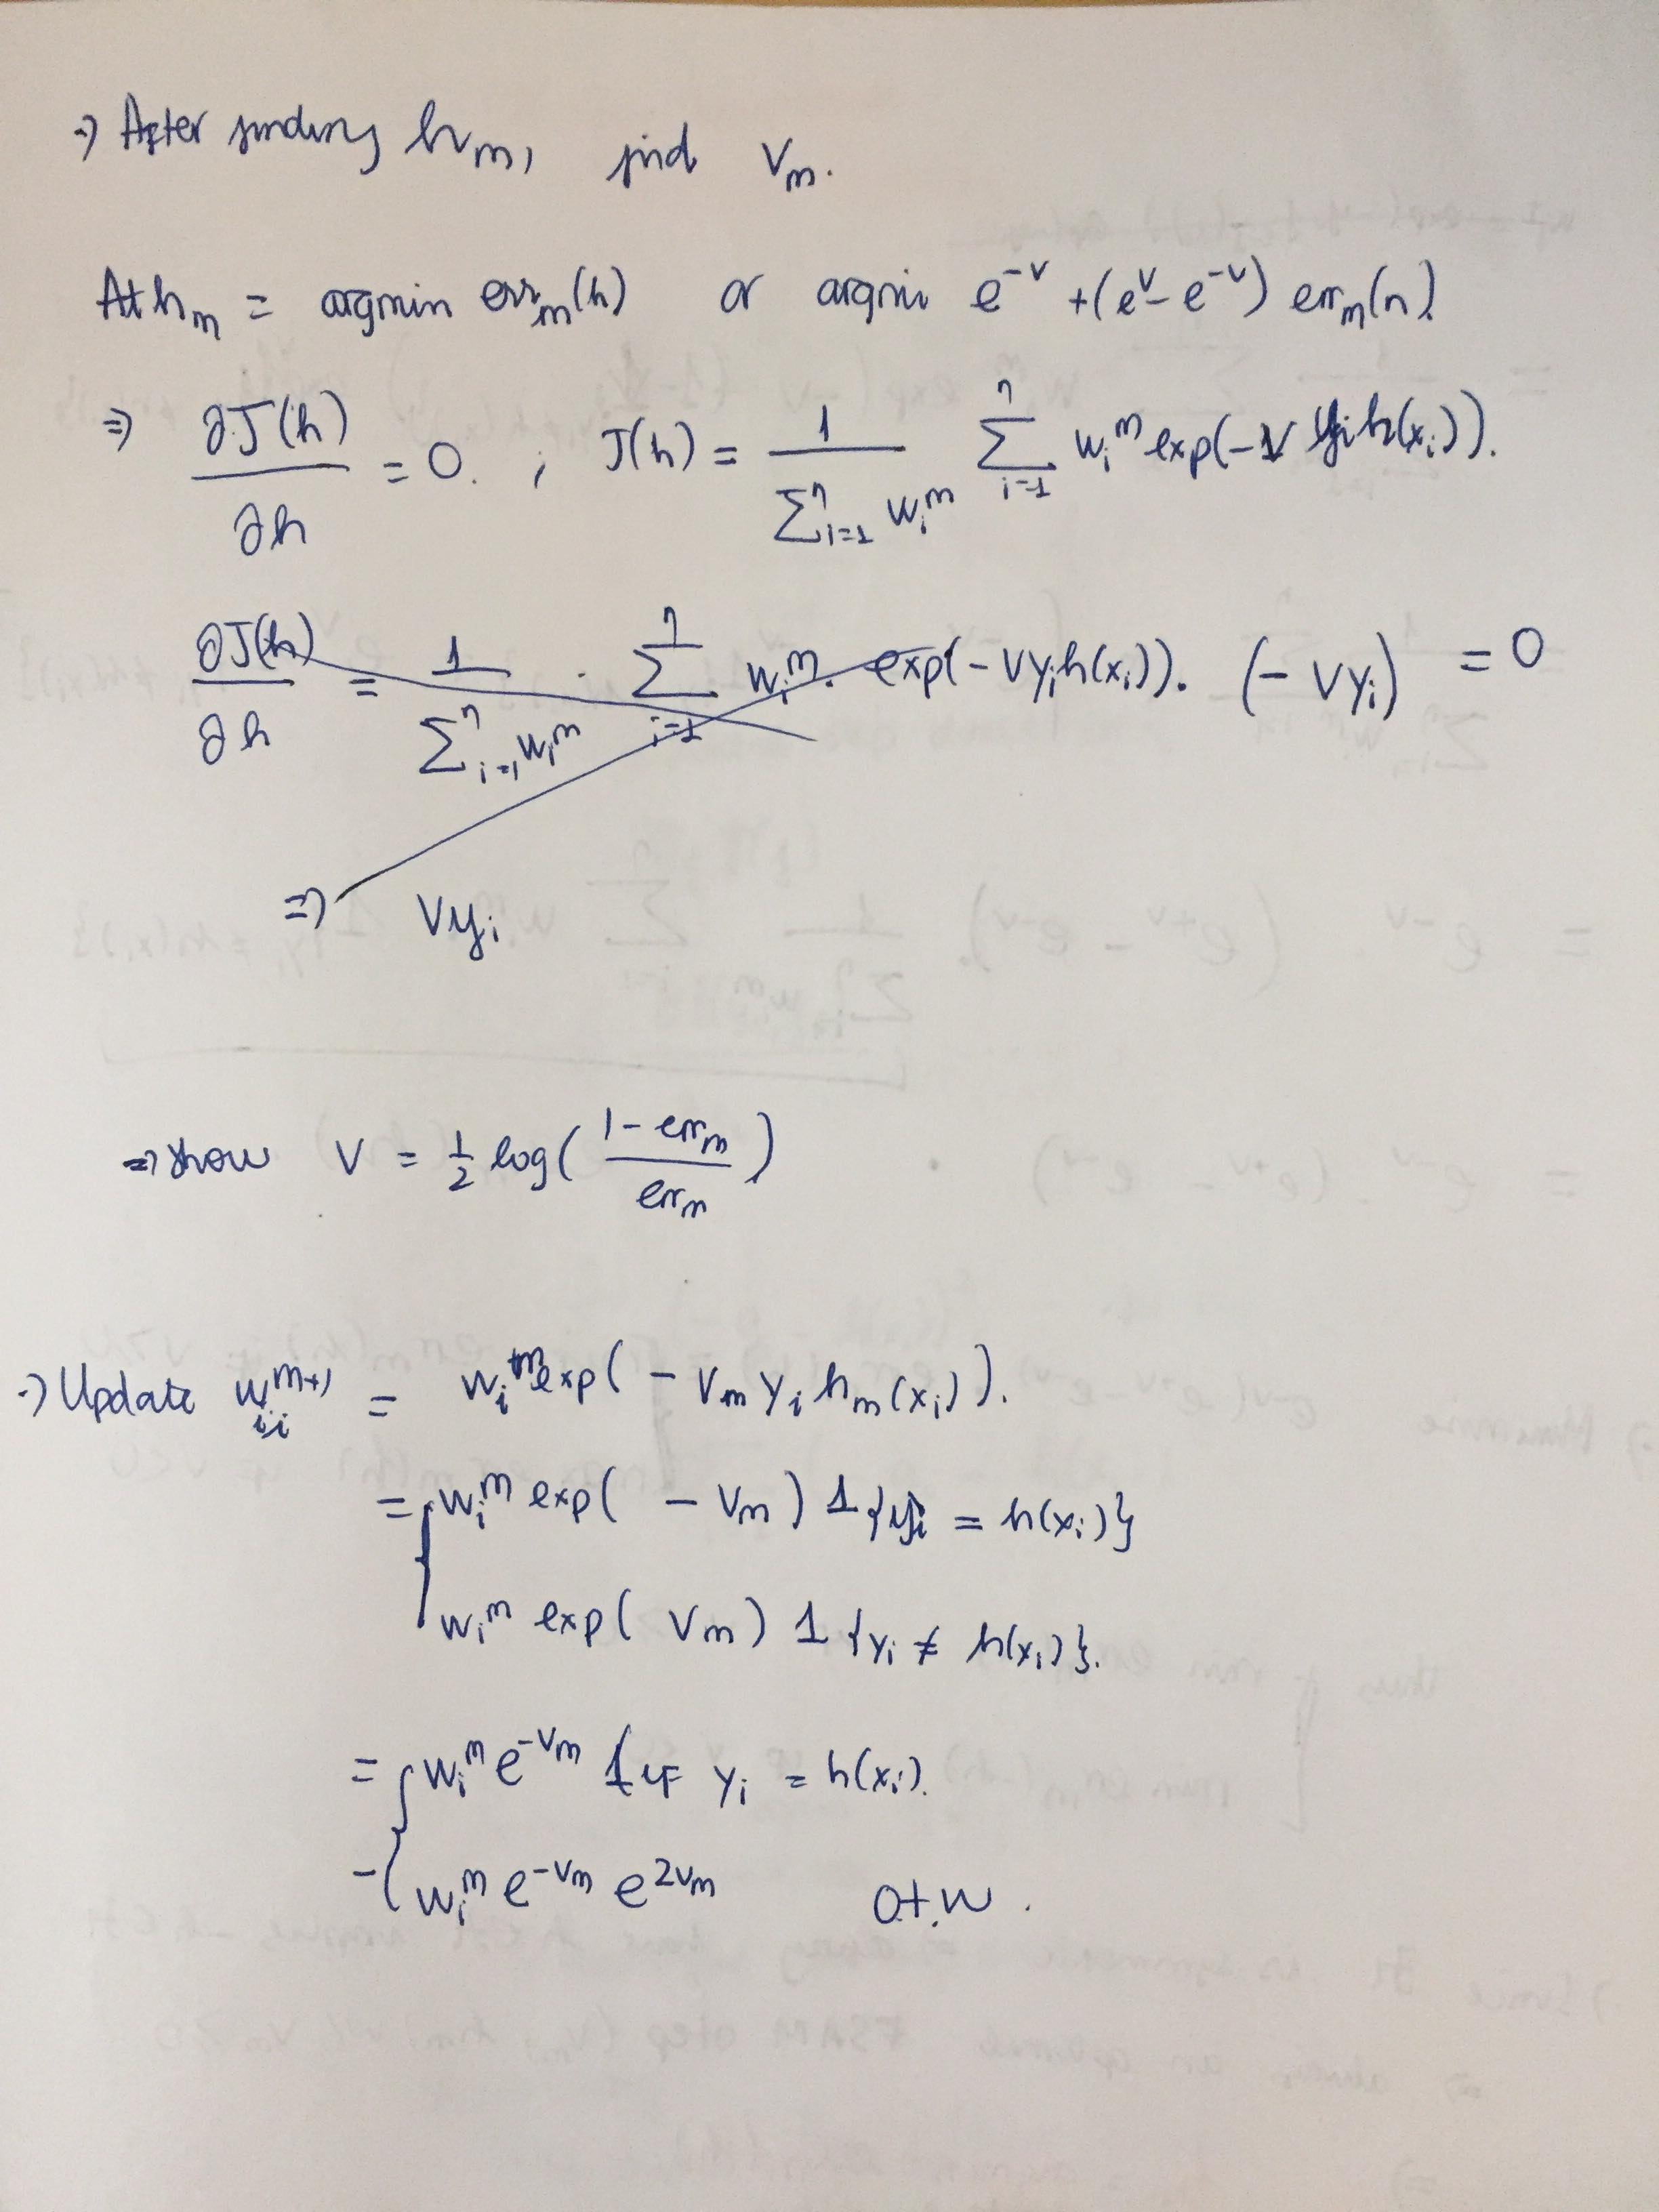 ⇒ After finding hm, find Vm.
At hm = argmin errm(h) or argmin e^{-v} + (e^{v} - e^{-v}) errm(h)
⇒ ∂J(h)/∂h = 0. ; J(h) = 1/(∑_{i=1}^n w_i^m) ∑_{i=1}^n w_i^m exp(-v y_i h(x_i)).
∂J(h)/∂h = 1/(∑_{i=1}^n w_i^m) · ∑_{i=1}^n w_i^m. exp(-v y_i h(x_i)). (-v y_i) = 0
⇒ V y_i
⇒ show V = 1/2 log((1 - err_m)/err_m)
⇒ Update w_i^{m+1} = w_i^m exp(- v_m y_i h_m(x_i)).
= { w_i^m exp( - v_m ) 1{y_i = h(x_i)}
w_i^m exp( v_m ) 1{y_i ≠ h(x_i)}.
= { w_i^m e^{-v_m} if y_i = h(x_i).
w_i^m e^{-v_m} e^{2v_m} o.t.w.